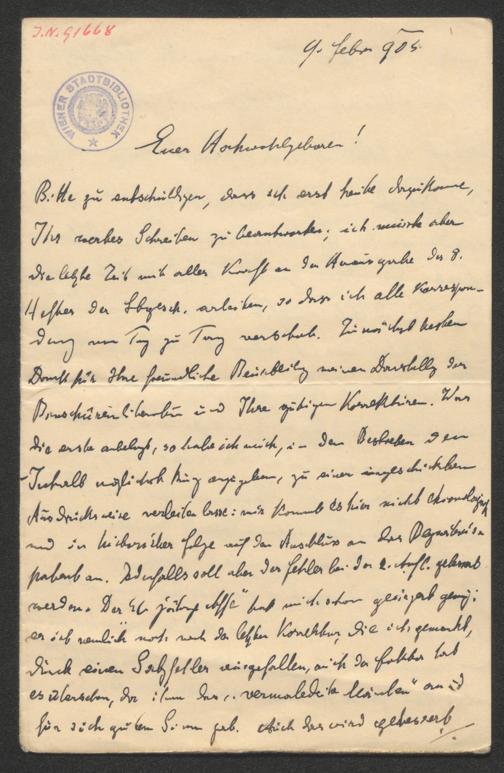 J.N. 91668
9. Febr. 905.
WIENER STADTBIBLIOTHEK
Euer Hochwohlgeboren!
Bitte zu entschuldigen, dass ich erst heute dazukomme,
Ihr wertes Schreiben zu beantworten; ich musste aber
die letzte Zeit mit aller Kraft an der Herausgabe des 9.
Heftes der arbeiten, so dass ich alle Korrespon-
denz von Tag zu Tag verschob. Zunächst besten
Dank für Ihre freundliche Beurteilung meiner Darstellung der
Broschürenliteratur und Ihre gütigen Korrekturen. Was
die erste anbelangt, so habe ich mich, in dem Bestreben den
Inhalt möglichst kurz anzugeben, zu einer ungeschickten
Ausdrucksweise verleiten lassen: mir kommt es hier nicht
und in historischer Folge auf den Anschluss an das
patent an. Jedenfalls soll aber der Fehler bei der 2. Aufl. gebessert
werden. Der jährige Affe" hat mich schon geärgert genug:
er ist nämlich noch nach der letzten Korrektur, die ich gemacht,
durch einen Satzfehler ausgefallen, auch der Faktor hat
es übersehen, da ihm das „vermaledeite
für sich guten Sinn gab. Auch das wird gebessert.